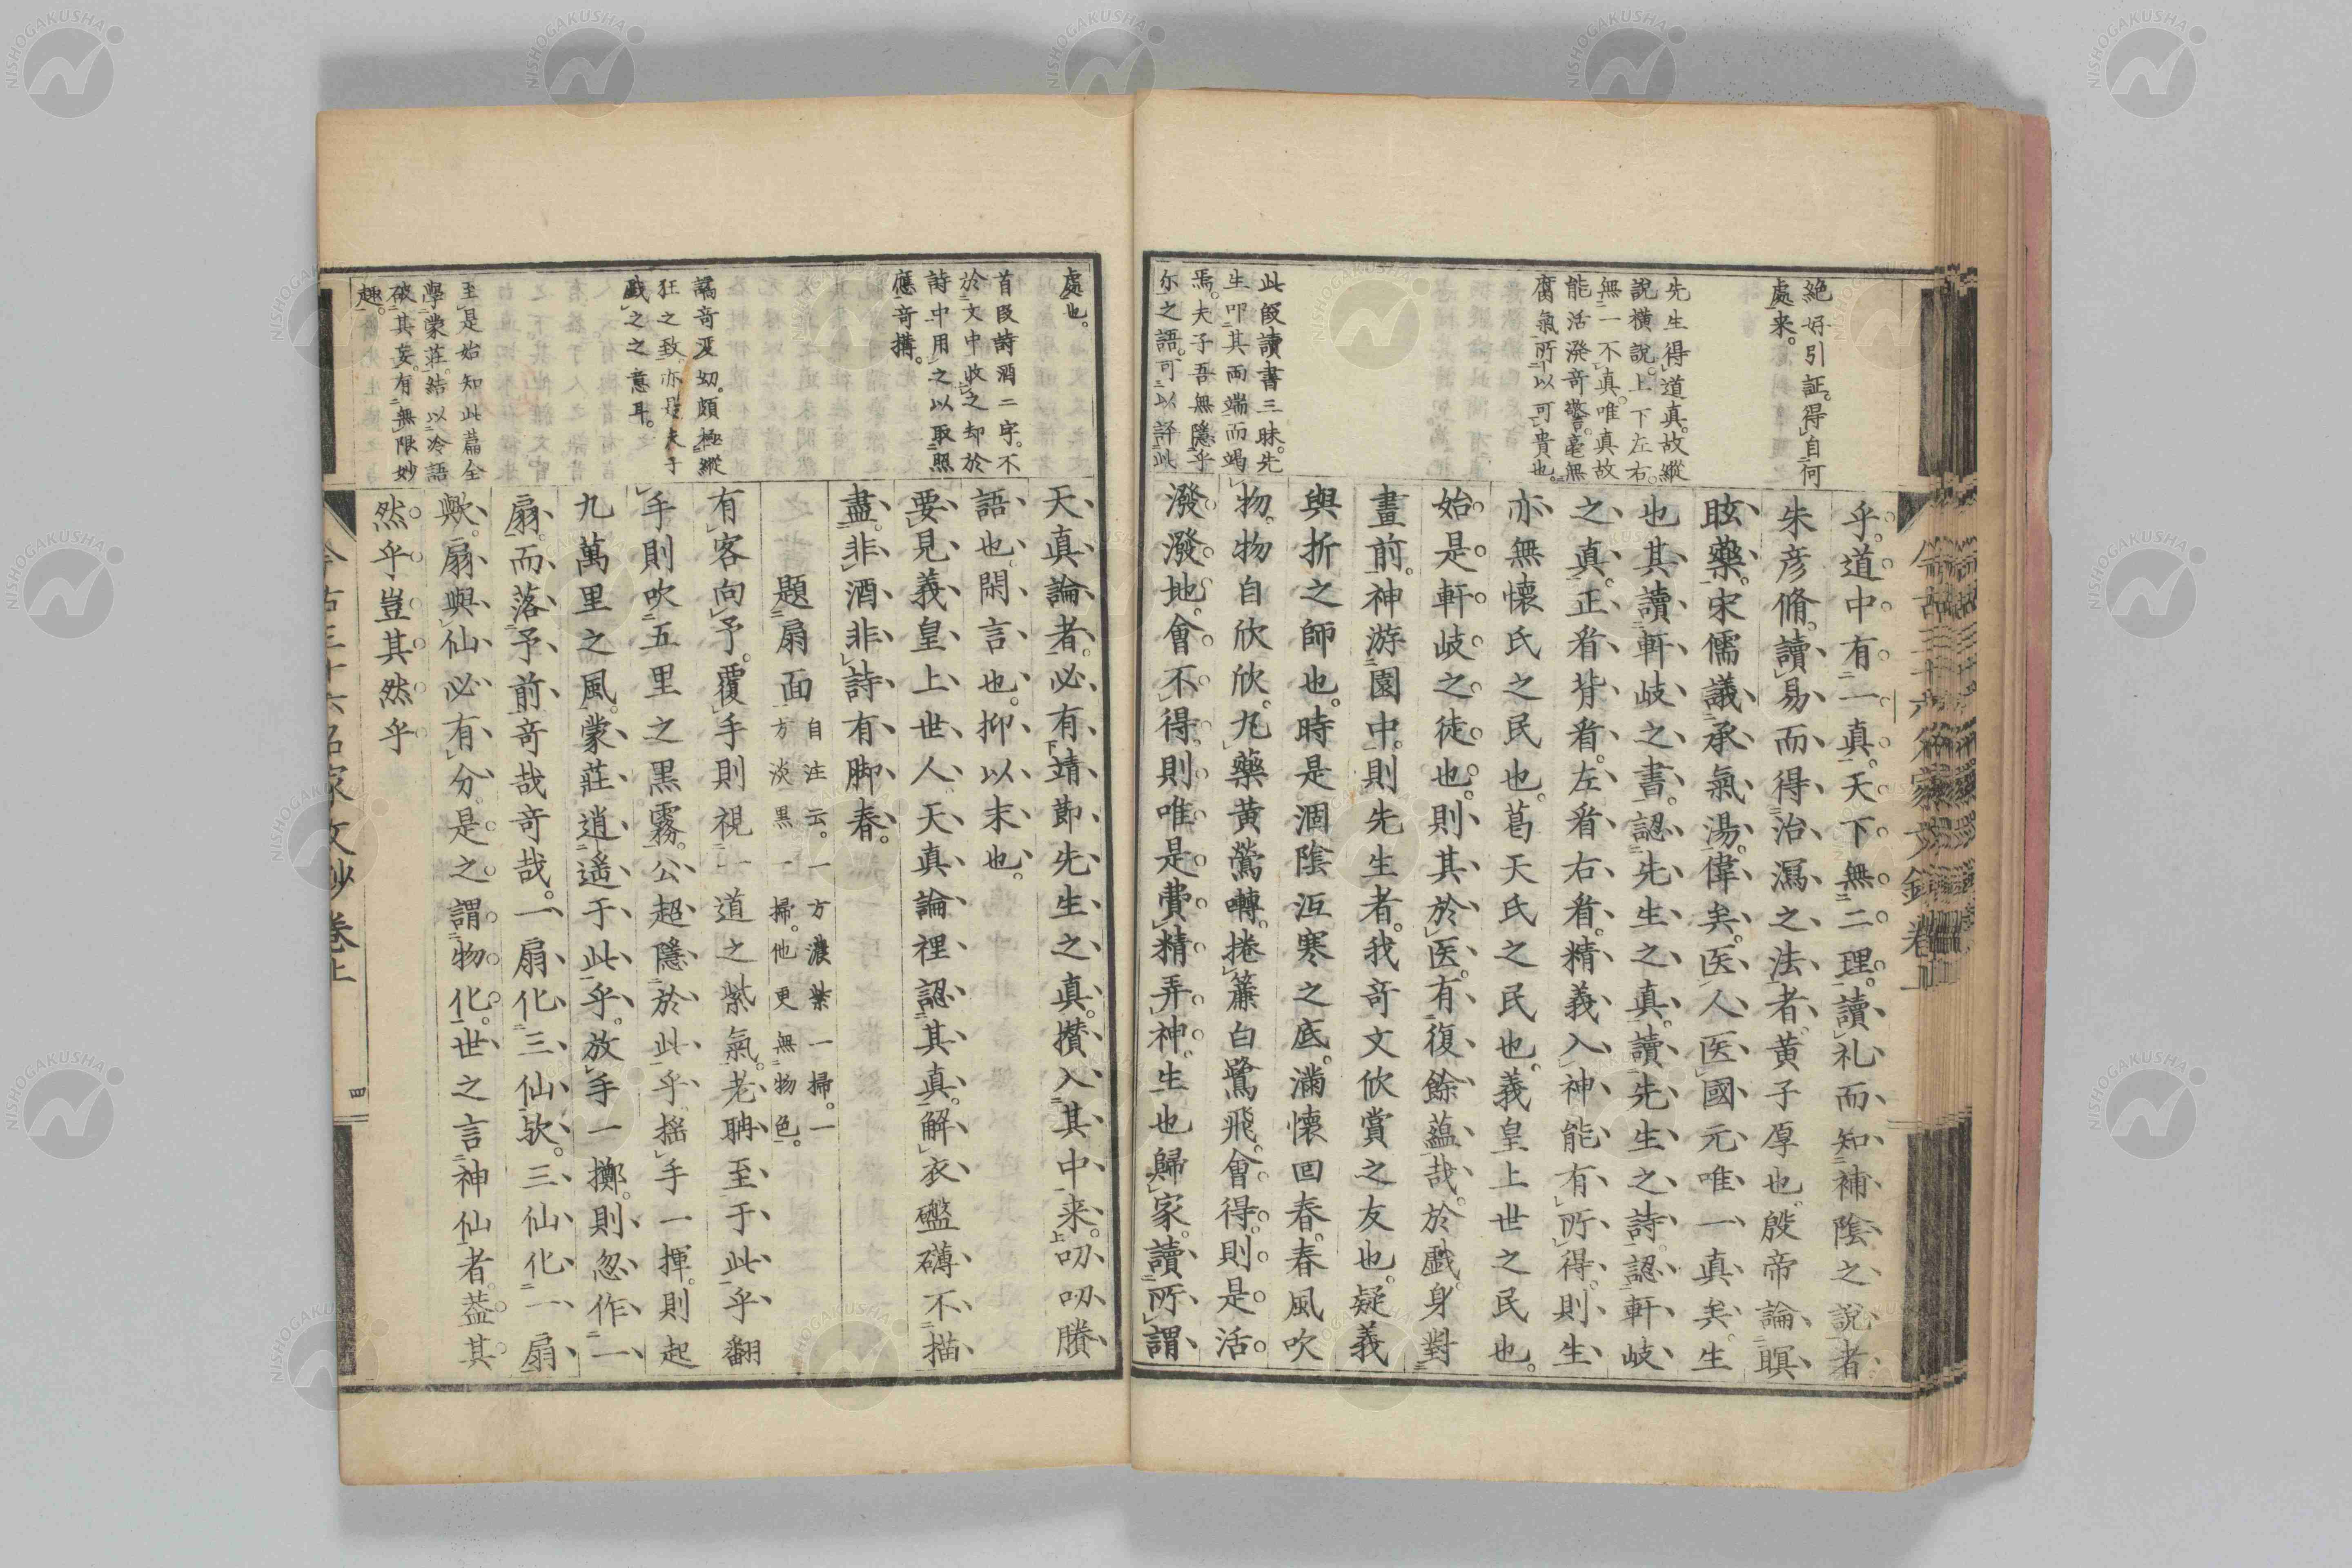 絶好引証。得自何
處來。
先生得道真。故縱
說橫說。上下左右。
無一不真。唯真故
能活潑奇警。毫無
腐氣所以可貴也。
此段讀書三昧。先
生叩其両端而竭
焉。夫子吾無隱乎
尓之語。可以評此
乎。道中有一真。天下無二理。讀礼而知補陰之說者
朱彦脩。讀易而得治瀉之法者。黄子厚也。殷帝論瞑
眩藥。宋儒議承氣湯。偉矣。医人医國元唯一真矣。生
也其讀軒岐之書。認先生之真。讀先生之詩。認軒岐
之真。正看背看。左看右看。精義入神能有所得。則生
亦無懷氏之民也。葛天氏之民也。義皇上世之民也。
始是軒岐之徒也。則其於医。有復餘蘊哉。於戲身對
畫前。神游園中。則先生者。我奇文欣賞之友也。疑義
與折之師也。時是涸陰沍寒之底。滿懷回春。春風吹
物。物自欣欣。九藥黄鶯囀。捲簾白鷺飛。會得。則是活
潑潑地。會不得。則唯是費精弄神。生也歸家。讀所謂
處也。
首段詩酒二字。不
於文中收之却於
詩中用之以取照
應。奇搆。
譎奇夏切。頗極縱
狂之致。亦是夫子
戲之之意耳。
至是始知此篇全
學蒙莊。結以冷語
破其妄。有無限妙
趣。
天真論者。必有靖節先生之真。攅入其中来。叨叨賸
語也。閑言也。抑以末也。
要見義皇上世人。天真論裡認其真。解衣礠礴不描
盡。非酒非詩有脚春。
題扇面
自注云。一方濃紫一掃。一
方淡黒一掃。他更無物色。
有客向予。覆手則視一道之紫氣。老聃至于此乎翻
手則吹五里之黒霧。公超隱於此乎。揺手一揮。則起
九萬里之風。蒙莊逍遥于此乎。放手一擲。則忽作一
扇。而落予前奇哉奇哉。一扇化三仙欤。三仙化一扇
歟。扇與仙必有分。是之謂物化。世之言神仙者。葢其
然乎豈其然乎
今古三十六名家文鈔卷上
四